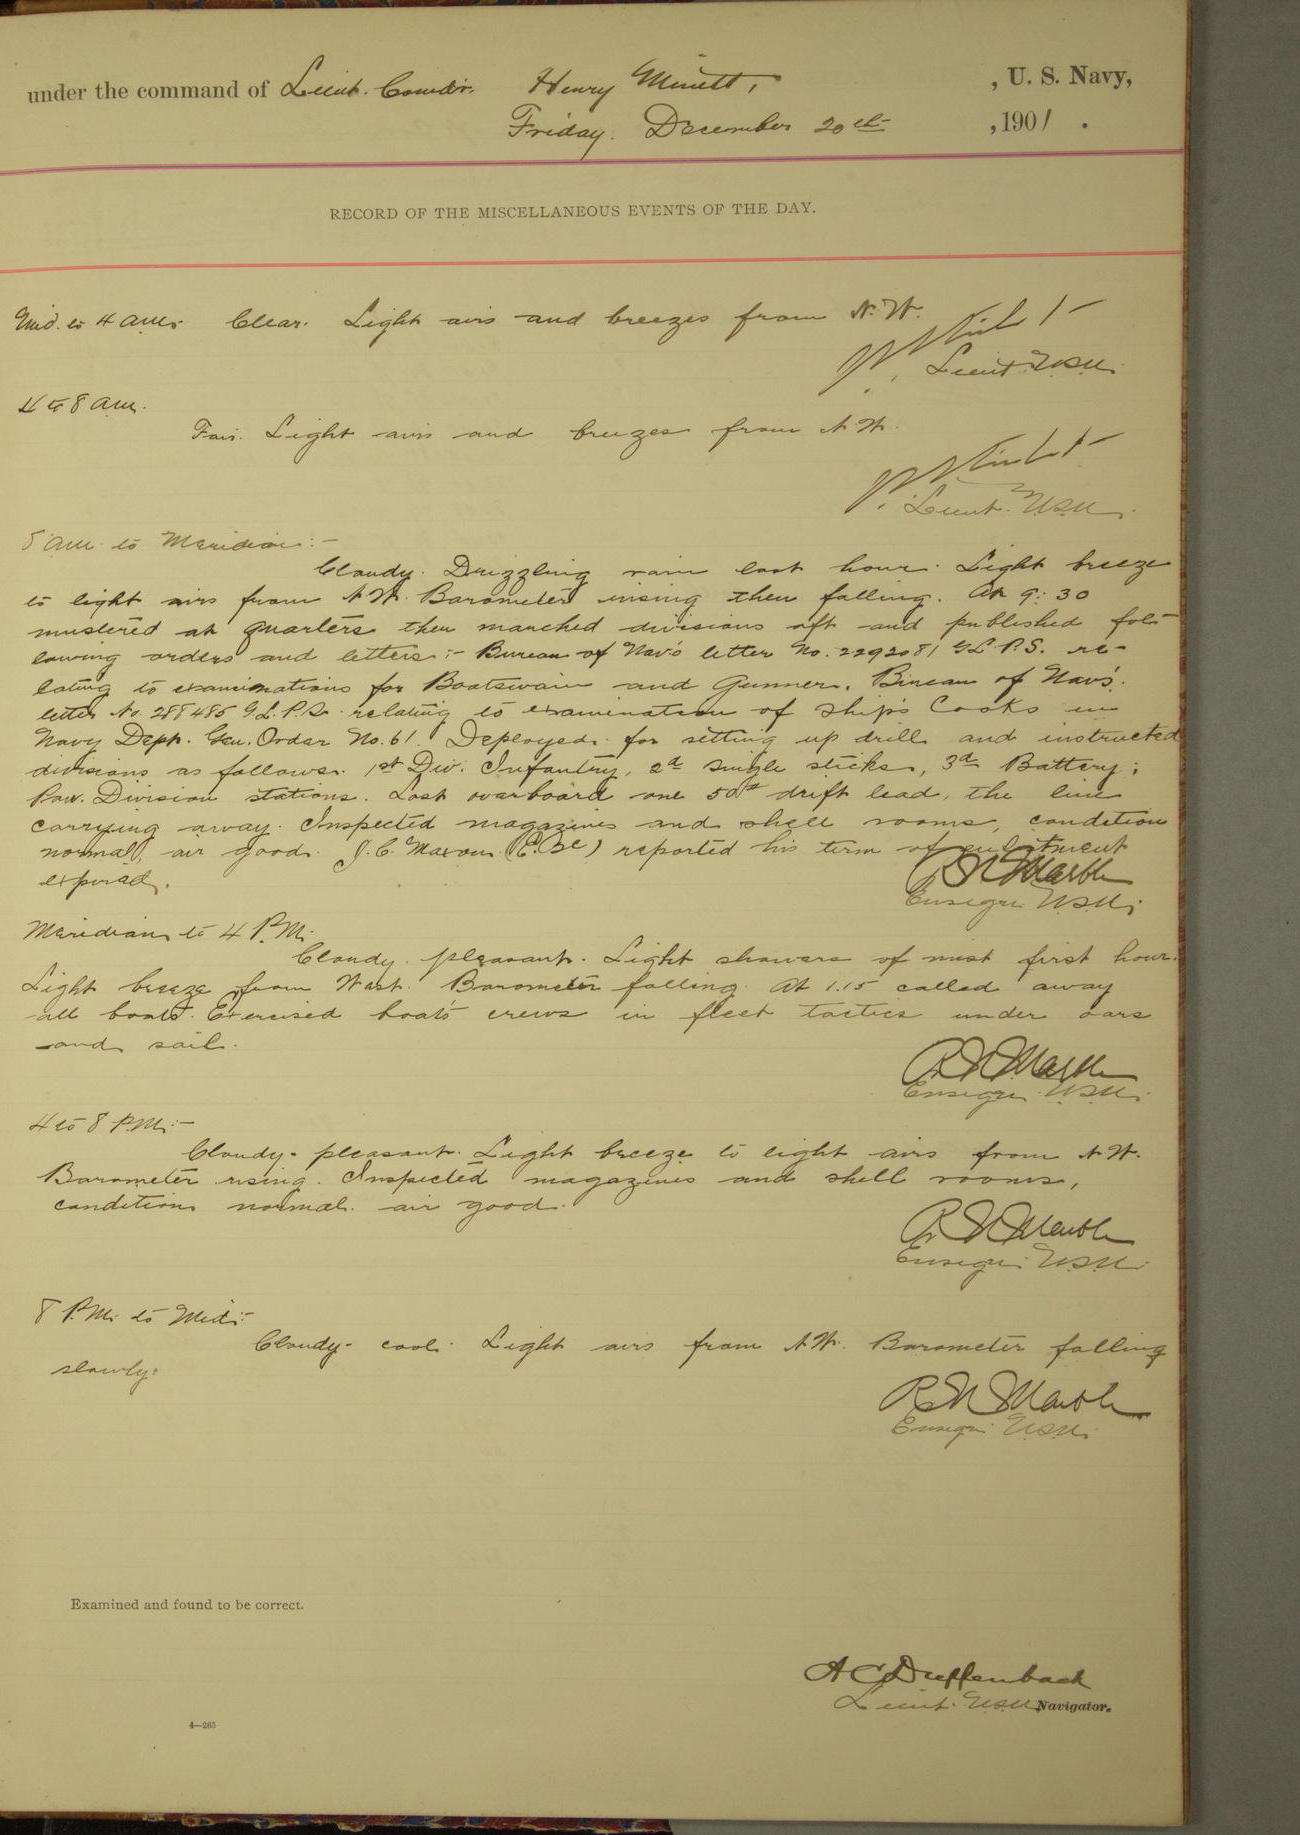 under the command of Lieut. Comdr. Henry Minett, , U. S. Navy,
Friday. December 20th , 1901 .
RECORD OF THE MISCELLANEOUS EVENTS OF THE DAY.
Mid. to 4 a.m. Clear. Light airs and breezes from N.W.
Lieut. U.S.N.
4 to 8 a.m.
Fair. Light airs and breezes from N.W.
Lieut. U.S.N.
8 a.m. to Meridian:-
Cloudy. Drizzling rain last hour. Light breeze
to light airs from N.W. Barometer rising then falling. At 9:30
mustered at quarters then marched divisions aft and published fol-
lowing orders and letters:- Bureau of Nav's letter No. 2292081 G.L.P.S. re-
lating to examinations for Boatswain and Gunner. Bureau of Nav's.
letter No. 288485 G.L.P.S. relating to examination of ship's Cooks in
Navy Dept. Gen. Order No. 61. Deployed for setting up drill and instructed
divisions as follows. 1st Div. Infantry, 2d single sticks, 3d Battery;
Pow. Division stations. Lost overboard one 50# drift lead, the line
carrying away. Inspected magazines and shell rooms, condition
normal, air good. J.C. Maxon reported his term of enlistment
expired.
R N Marble
Ensign U.S.N.
Meridian to 4 P.M.
Cloudy. pleasant. Light showers of mist first hour.
Light breeze from West. Barometer falling. At 1.15 called away
all boats. Exercised boat's crews in fleet tactics under oars
and sail.
R N Marble
Ensign U.S.N.
4 to 8 P.M.:-
Cloudy - pleasant. Light breeze to light airs from N.W.
Barometer rising. Inspected magazines and shell rooms,
conditions normal. air good.
R N Marble
Ensign U.S.N.
8 P.M. to Mid:-
Cloudy - cool. Light airs from N.W. Barometer falling
slowly.
R N Marble
Ensign U.S.N.
Examined and found to be correct.
A C Dieffenbach
Lieut. U.S.N. Navigator.
4—265